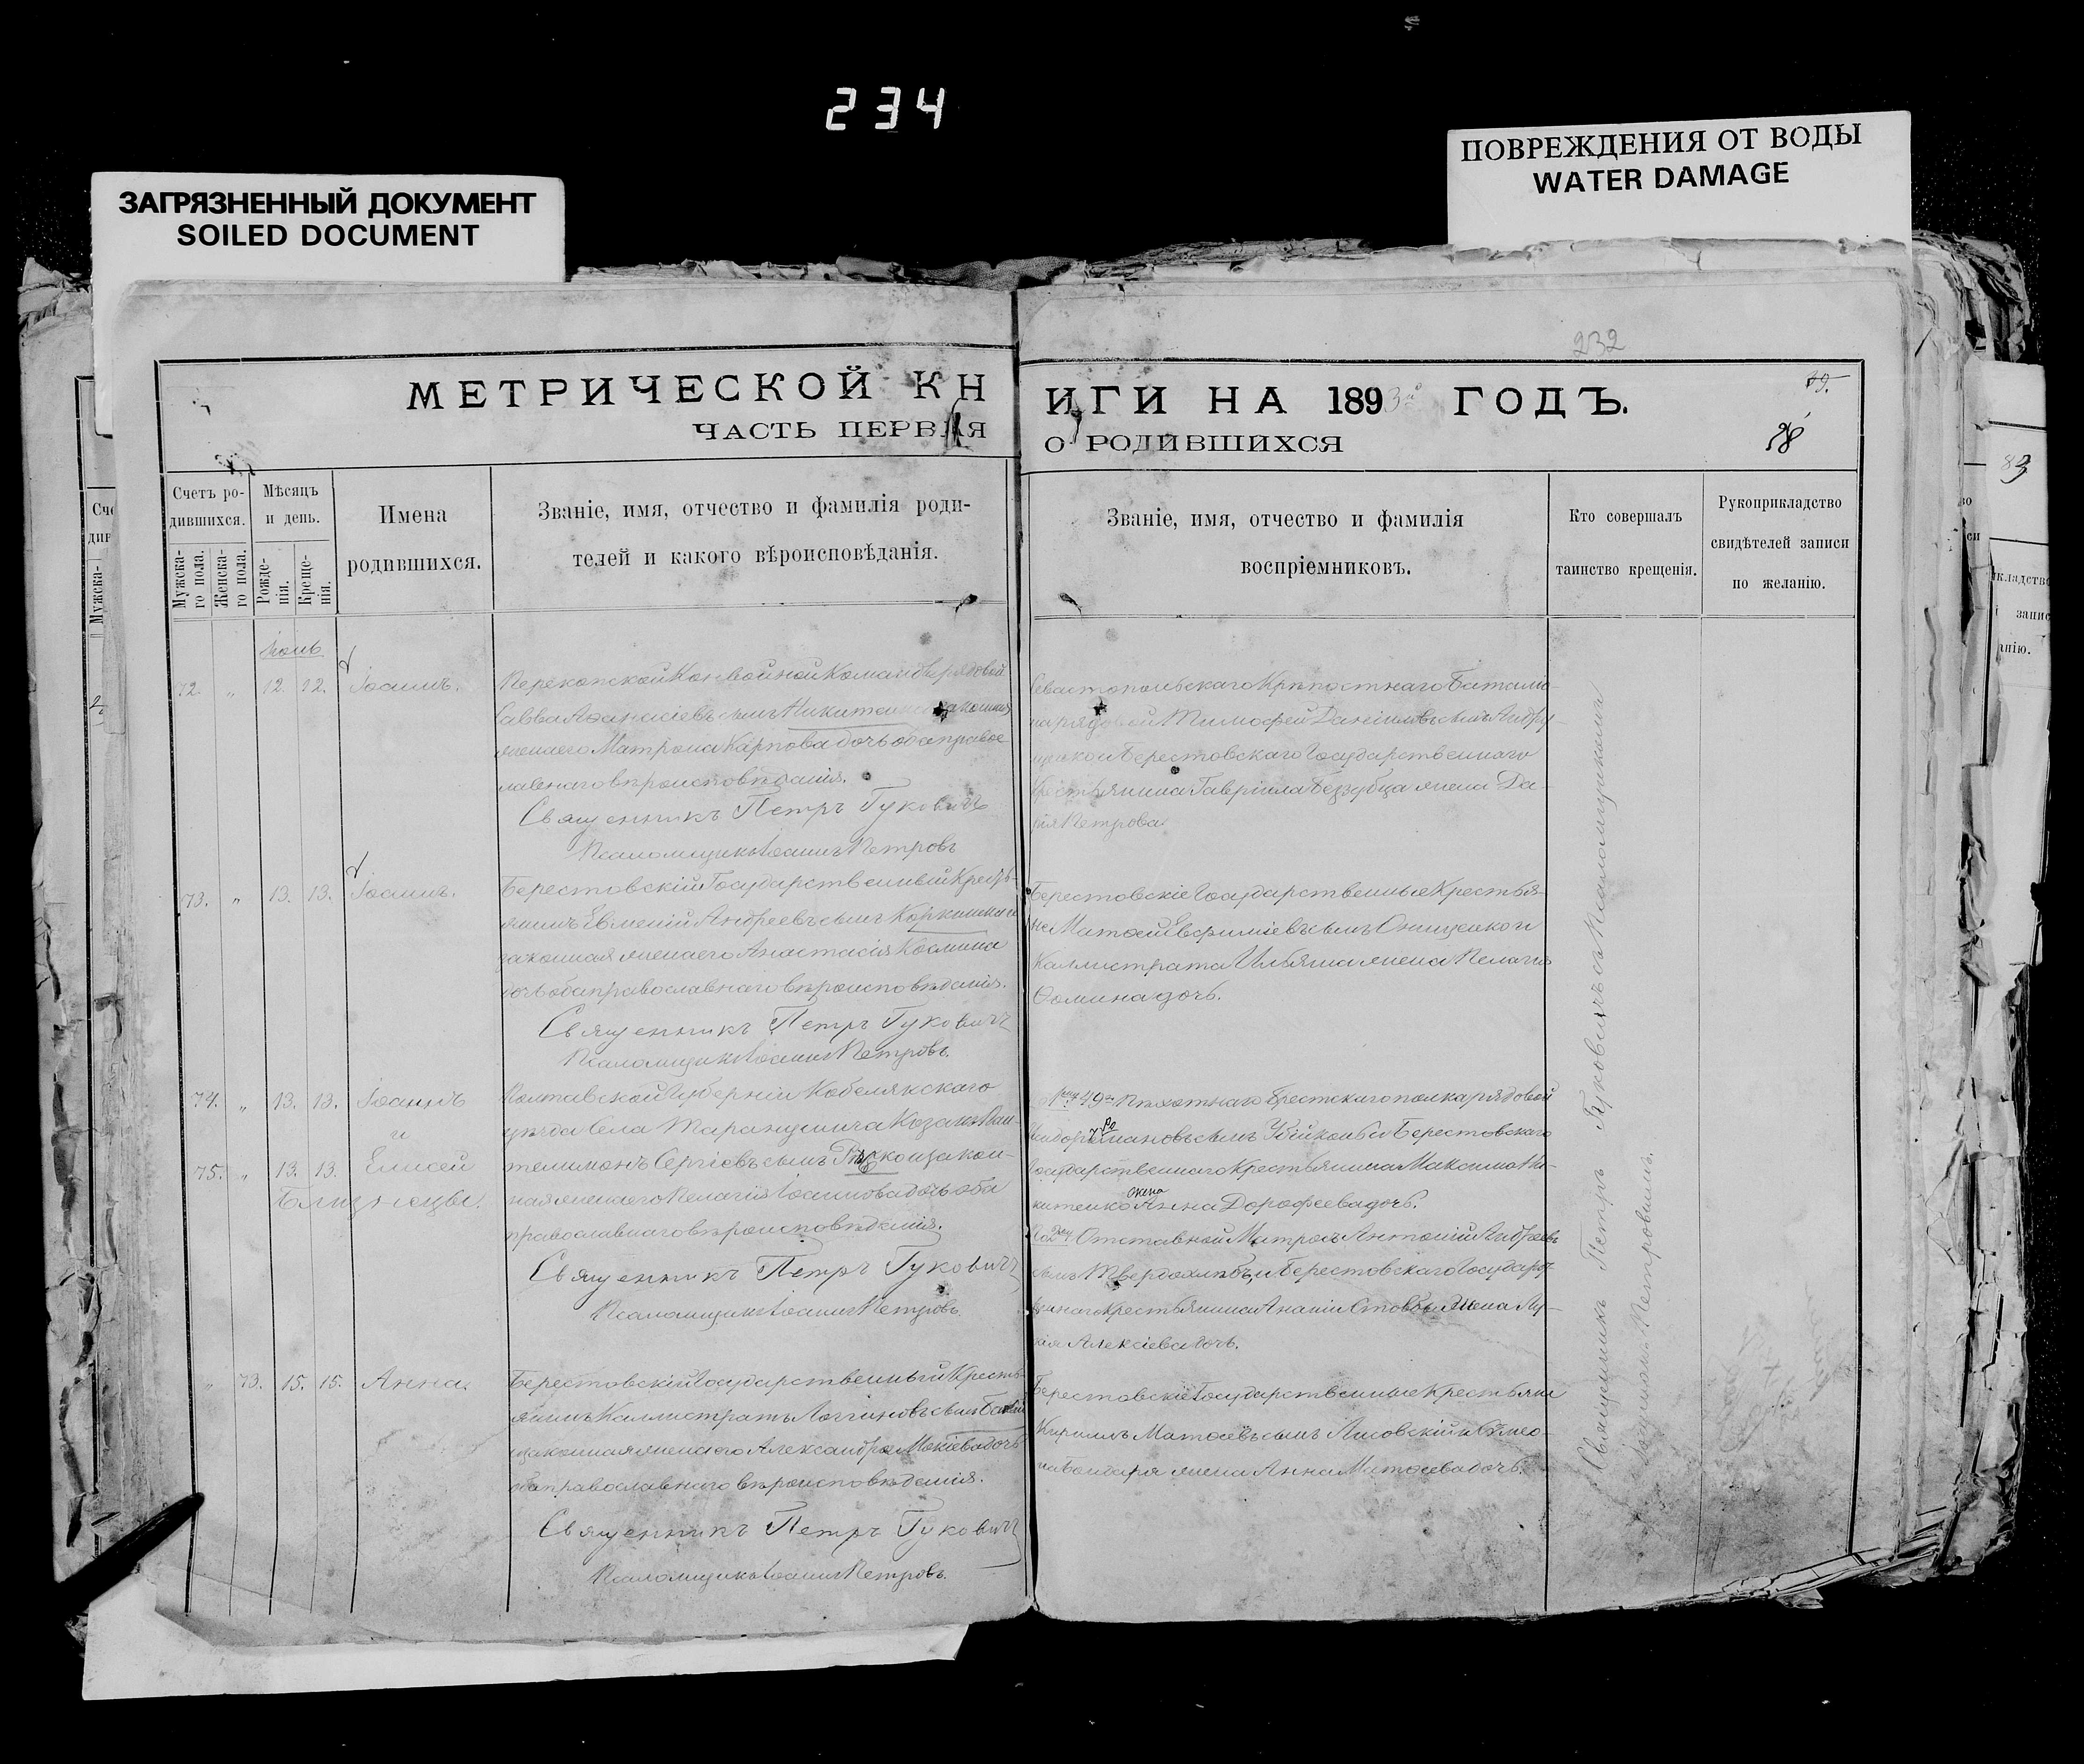 234
ЗАГРЯЗНЕННЫЙ ДОКУМЕНТ
SOILED DOCUMENT
ПОВРЕЖДЕНИЯ ОТ ВОДЫ
WATER DAMAGE
232
МЕТРИЧЕСКОЙ КН
ЧАСТЬ ПЕРВАЯ
Счетъ ро-
дившихся.
Мужска-
го пола.
Женска-
го пола.
Мѣсяцъ
и день.
Рожде-
нія.
Креще-
нія.
Имена
родившихся.
Званіе, имя, отчество и фамилія роди-
телей и какого вѣроисповѣданія.
72. „ 12. 12. Іоаннъ.
Перекопской Конвойной Команды рядовой
Савва Аѳанасіевъ сынъ законная
жена его Матрона Карпова дочь оба право-
славнаго вѣроисповѣданія.
Священникъ Петръ Гуковичъ
Псаломщикъ Іоаннъ Петровъ
73. „ 13. 13. Іоаннъ.
Берестовскій Государственный Кресть-
янинъ Евменій Андреевъ сынъ и
законная жена его Анастасія Косьмина
дочь оба православнаго вѣроисповѣданія.
Священникъ Петръ Гуковичъ
Псаломщикъ Іоаннъ Петровъ.
74. „ 13. 13. Іоаннъ
и
75. „ 13. 13. Елисей
Близнецы.
Полтавской Губерніи Кобелякскаго
уѣзда села Козакъ Пан-
телимонъ Сергіевъ сынъ и закон-
ная жена его Пелагія Іоаннова дочь оба
православнаго вѣроисповѣданія.
Священникъ Петръ Гуковичъ
Псаломщикъ Іоаннъ Петровъ
„ 73. 15. 15. Анна.
Берестовскій Государственный Кресть-
янинъ Каллистратъ Логгиновъ сынъ
законная жена его Александра Мокіева дочь
оба православнаго вѣроисповѣданія.
Священникъ Петръ Гуковичъ
Псаломщикъ Іоаннъ Петровъ.
ИГИ НА 1893й ГОДЪ.
О РОДИВШИХСЯ
Званіе, имя, отчество и фамилія
воспріемниковъ.
Кто совершалъ
таинство крещенія.
Рукоприкладство
свидѣтелей записи
по желанію.
Севастопольскаго Крѣпостнаго Баталіо-
на рядовой Тимофей Даніиловъ сынъ Андру-
щенко и Берестовскаго Государственнаго
Крестьянина Гавріила Беззубца жена Да-
рія Петрова
Берестовскіе Государственные Крестья-
не Матѳей Евфиміевъ сынъ Онищенко и
Каллистрата Ильяша жена Пелагія
Ѳомина дочь.
49го Пѣхотнаго Брестскаго полка рядовой
сынъ и Берестовскаго
Государственнаго Крестьянина Максима Ни-
китенко жена Анна Дорофеева дочь.
Отставной Матросъ Антоній Андреевъ
сынъ Твердохлѣбъ, и Берестовскаго Государст-
веннаго Крестьянина Ананіи жена Лу-
кія Алексіева дочь.
Берестовскіе Государственные Крестьяне
Кириллъ Матѳеевъ сынъ Лисовскій и Симео-
на Бондаря жена Анна Матѳеева дочь.
Священникъ Петръ Гуковичъ съ Псаломщикомъ
Іоанномъ Петровымъ.
83